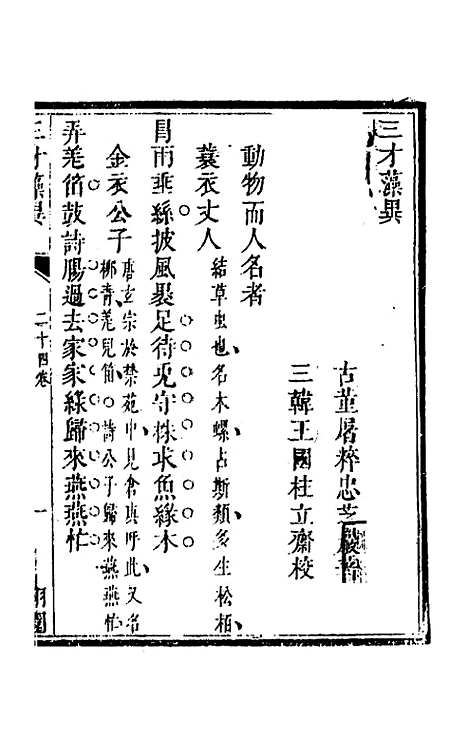 三才藻異
古董屠粹忠芝巖
三韓王國柱立齋校
動物而人名者
蓑衣丈人
結草虫也名木螺占斯類多生松柏
冒雨垂絲披風裹足待兎守株求魚緣木
金衣公子
唐玄宗於禁苑中見倉庚呼此又名
柳青羌兒笛詩公子歸來燕燕忙
弄羌笛鼓詩腸過去家家綠歸來燕燕忙
三才藻異
二十四卷
一